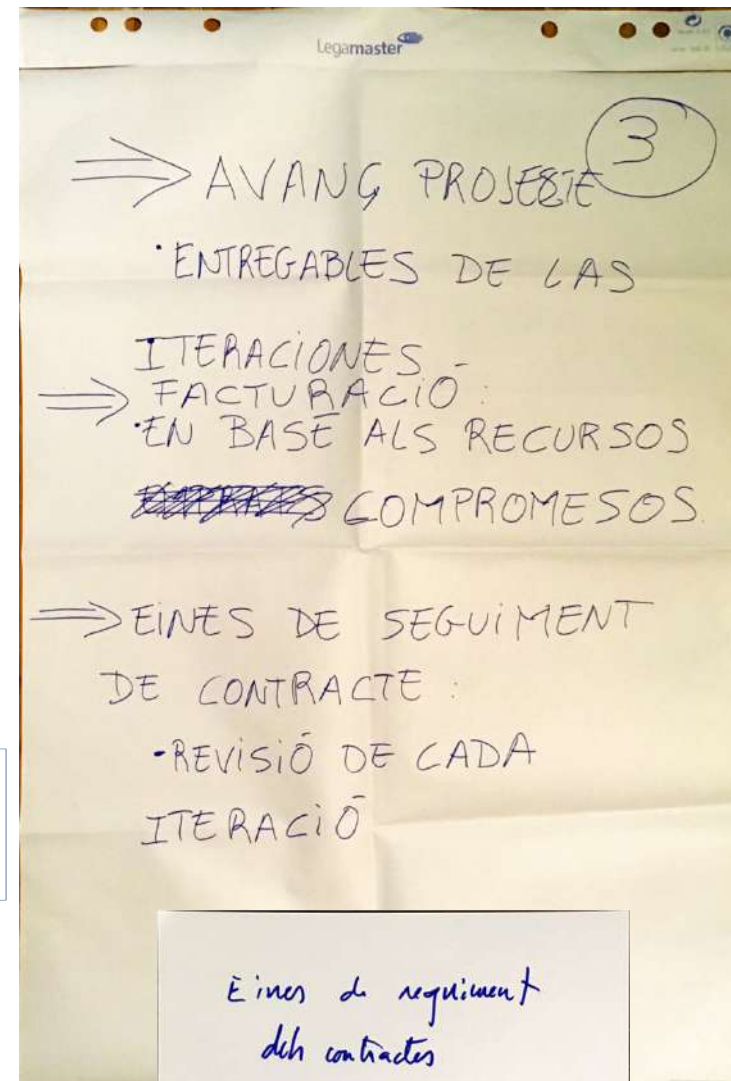 Legamaster
3
⇒ AVANÇ PROJECTE
· ENTREGABLES DE LAS
ITERACIONES
⇒ FACTURACIÓ:
· EN BASE ALS RECURSOS
COMPROMESOS.
⇒ EINES DE SEGUIMENT
DE CONTRACTE:
- REVISIÓ DE CADA
ITERACIÓ
Eines de seguiment
dels contractes